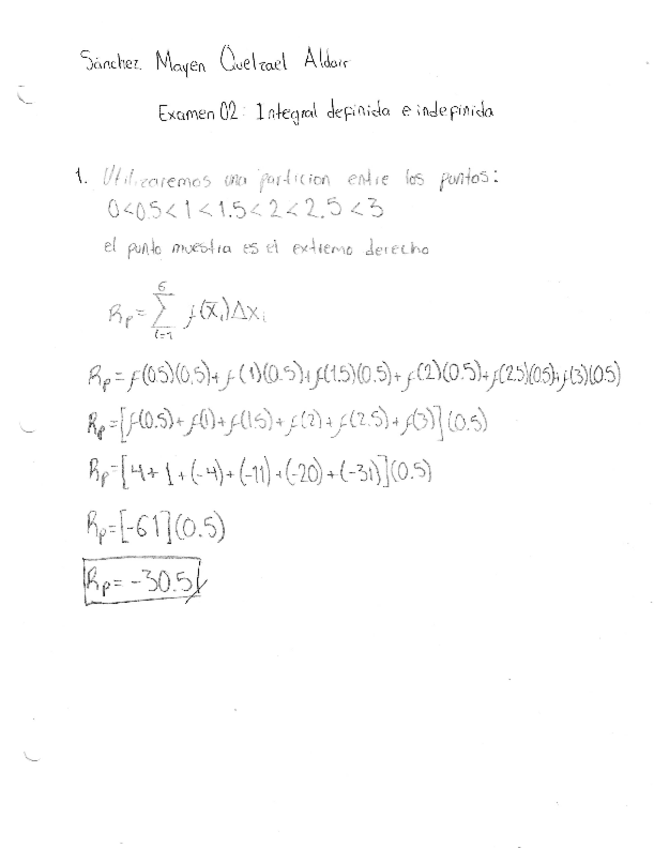 Sánchez Mayen Quetzael Aldair
Examen 02: Integral definida e indefinida
1. Utilizaremos una particion entre los puntos:
0<0.5<1<1.5<2<2.5<3
el punto muestra es el extremo derecho
Rp=∑_{i=1}^{6} f(x̄ᵢ)Δxᵢ
Rp=f(0.5)(0.5)+f(1)(0.5)+f(1.5)(0.5)+f(2)(0.5)+f(2.5)(0.5)+f(3)(0.5)
Rp=[f(0.5)+f(1)+f(1.5)+f(2)+f(2.5)+f(3)](0.5)
Rp=[4+1+(-4)+(-11)+(-20)+(-31)](0.5)
Rp=[-61](0.5)
Rp=-30.5